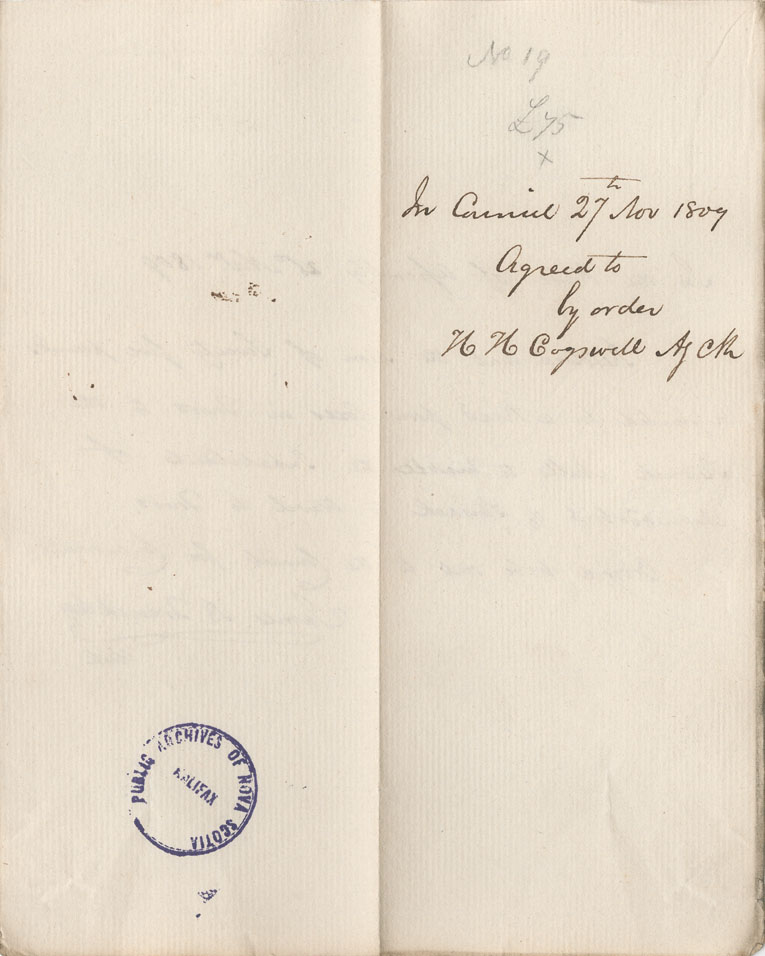 No 19
£75
x
In Council 27th Nov 1809
Agreed to
by order
H H Cogswell Ag Clk
PUBLIC ARCHIVES OF NOVA SCOTIA
HALIFAX